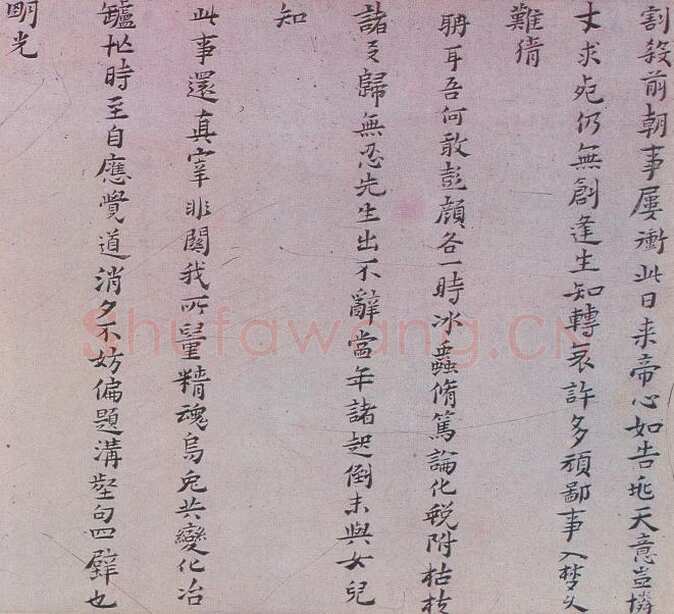 割殺前朝事屢衝此日来帝心如告兆天意豈憐
才求死仍無創逢生知轉哀許多頑鄙事入夢久
難猜
聃耳吾何敢彭顔各一時冰蟲脩篤論化蛻附枯枝
諸歸無忍先生出不辭當年諸起倒未與女兒
知
此事還真宰非關我所量精魂烏兔共變化冶
罏忙時至自應覺道消夕不妨偏題溝壑句四壁也
明光
Shufawang.CN